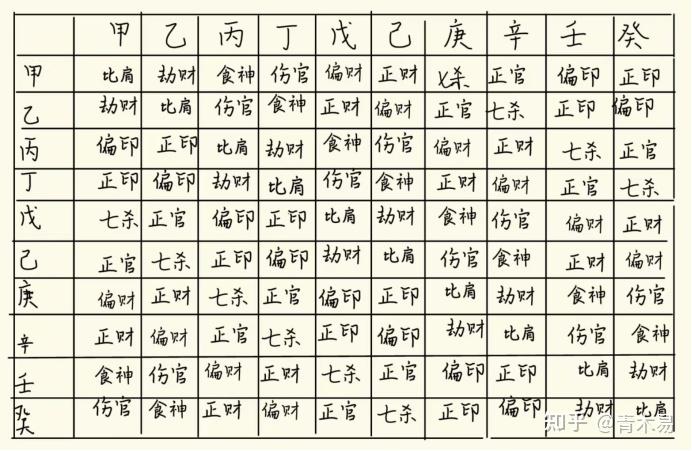 甲 乙 丙 丁 戊 己 庚 辛 壬 癸
甲 比肩 劫财 食神 伤官 偏财 正财 七杀 正官 偏印 正印
乙 劫财 比肩 伤官 食神 正财 偏财 正官 七杀 正印 偏印
丙 偏印 正印 比肩 劫财 食神 伤官 偏财 正财 七杀 正官
丁 正印 偏印 劫财 比肩 伤官 食神 正财 偏财 正官 七杀
戊 七杀 正官 偏印 正印 比肩 劫财 食神 伤官 偏财 正财
己 正官 七杀 正印 偏印 劫财 比肩 伤官 食神 正财 偏财
庚 偏财 正财 七杀 正官 偏印 正印 比肩 劫财 食神 伤官
辛 正财 偏财 正官 七杀 正印 偏印 劫财 比肩 伤官 食神
壬 食神 伤官 偏财 正财 七杀 正官 偏印 正印 比肩 劫财
癸 伤官 食神 正财 偏财 正官 七杀 正印 偏印 劫财 比肩
知乎 @青木易